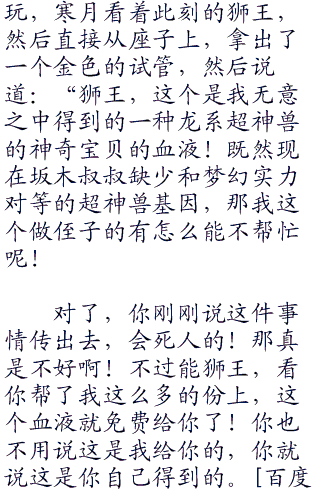 玩，寒月看着此刻的狮王，
然后直接从座子上，拿出了
一个金色的试管，然后说
道：“狮王，这个是我无意
之中得到的一种龙系超神兽
的神奇宝贝的血液！既然现
在坂木叔叔缺少和梦幻实力
对等的超神兽基因，那我这
个做侄子的有怎么能不帮忙
呢！
对了，你刚刚说这件事
情传出去，会死人的！那真
是不好啊！不过能狮王，看
你帮了我这么多的份上，这
个血液就免费给你了！你也
不用说这是我给你的，你就
说这是你自己得到的。[百度